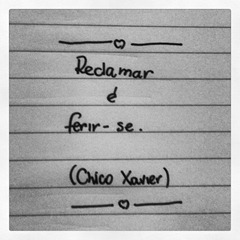 Reclamar
é
ferir-se.
(Chico Xavier)